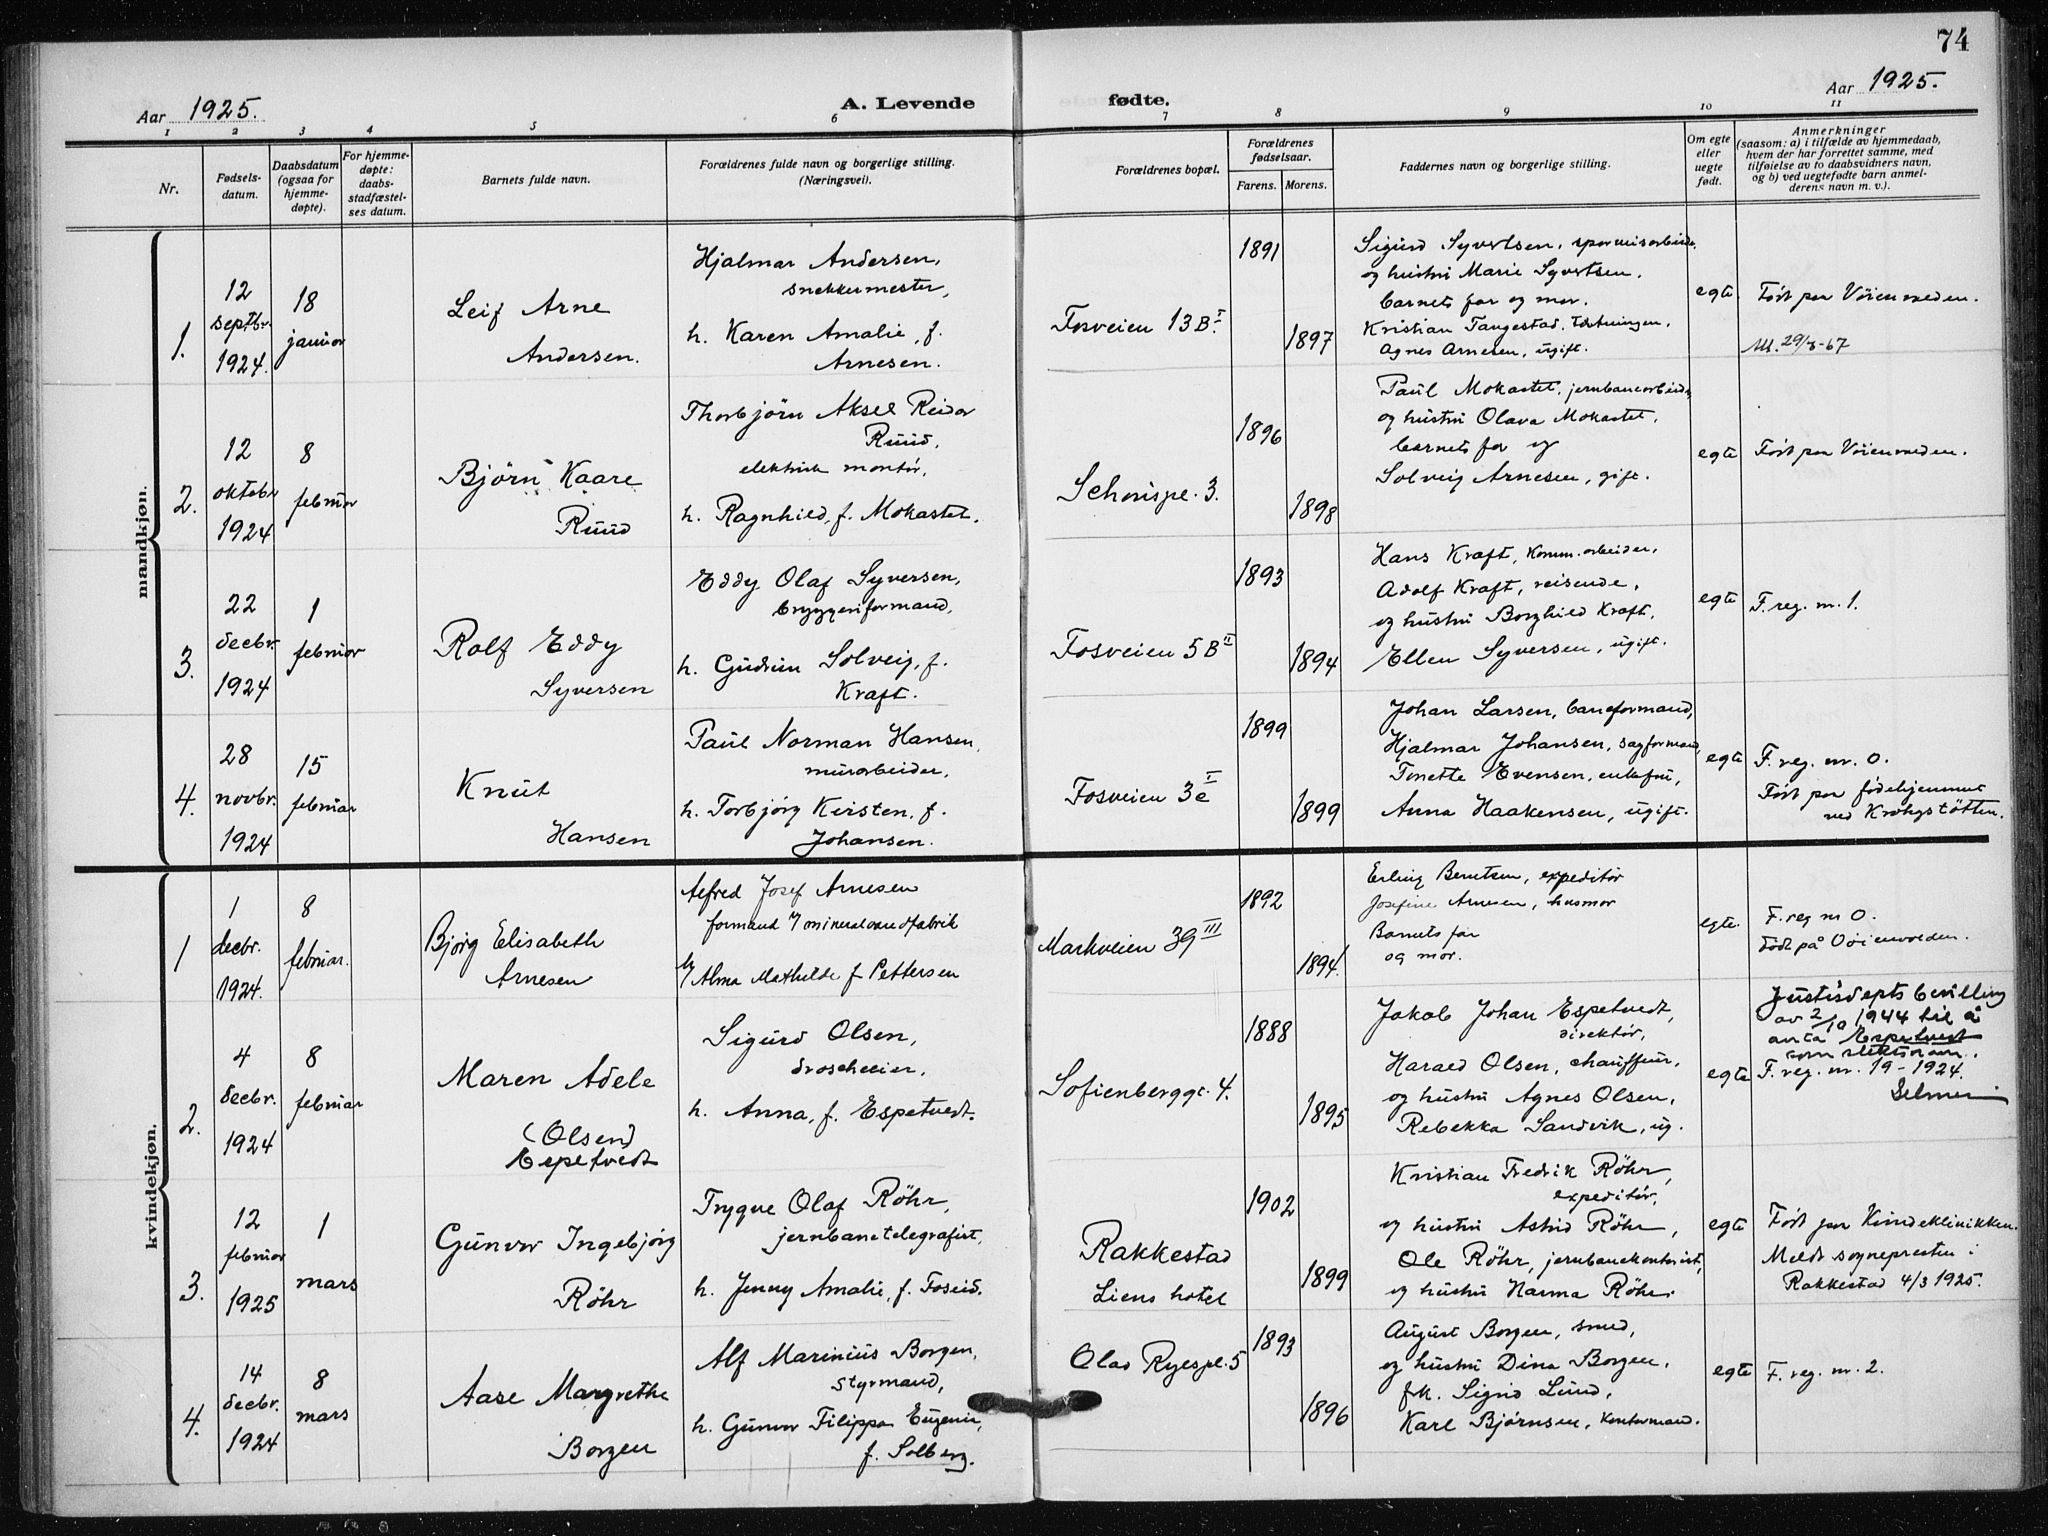 74
Aar 1925.
A. Levende
fødte.
Aar 1925.
1 2 3 4 5 6 7 8 9 10 11
Nr.
Fødsels-
datum.
Daabsdatum
(ogsaa for
hjemme-
døpte).
For hjemme-
døpte:
daabs-
stadfæstel-
ses datum.
Barnets fulde navn.
Forældrenes fulde navn og borgerlige stilling.
(Næringsvei).
Forældrenes bopæl.
Forældrenes
fødselsaar.
Farens. Morens.
Faddernes navn og borgerlige stilling.
Om egte
eller
uegte
født.
Anmerkninger
(saasom: a) i tilfælde av hjemmedaab,
hvem der har forrettet samme, med
tilføielse av to daabsvidners navn,
og b) ved uegtefødte barn anmel-
derens navn m. v.).
mandkjøn.
1.
12
septbr.
1924.
18
januar
Leif Arne
Andersen.
Hjalmar Andersen,
snekkermester,
h. Karen Amalie, f.
Arnesen.
Fosveien 13 B I.
1891
1897
Sigurd Syvertsen, sporveisarbeider
og hustru Marie Syvertsen.
barnets far og mor.
Kristian Tangestad,
Agnes Arnesen, ugift.
egte.
Født paa Vøienvolden.
Utl. 29/8-67
2.
12
oktobr
1924
8
februar
Bjørn Kaare
Ruud
Thorbjörn Aksel Reidar
Ruud,
elektrisk montør,
h. Ragnhild, f. Mokastet.
Schouspl. 3.
1896
1898
Paul Mokastet, jernbanearbeider
og hustru Olava Mokastet,
barnets far og
Solveig Arnesen, gift.
egte
Født paa Vøienvolden.
3.
22
decbr.
1924
1
februar
Rolf Eddy
Syversen
Eddy Olaf Syversen,
bryggeriformand,
h. Gudrun Solveig, f.
Kraft.
Fosveien 5 B II
1893
1894
Hans Kraft, komm. arbeider,
Adolf Kraft, reisende,
og hustru Borghild Kraft,
Ellen Syversen, ugift.
egte
F. reg. nr. 1.
4.
28
novbr.
1924
15
februar
Knut
Hansen
Paul Norman Hansen,
murarbeider,
h. Torbjörg Kirsten, f.
Johansen.
Fosveien 3 c I
1899
1899
Johan Larsen, baneformand,
Hjalmar Johansen, sagformand,
Tonette Evensen, enkefru,
Anna Haakensen, ugift.
egte
F. reg. nr. 0.
Født paa fødehjemmet
ved Krohgstøtten.
kvindekjøn.
1
1
decbr.
1924.
8
februar.
Bjørg Elisabeth
Arnesen
Alfred Josef Arnesen
formand v/ mineralvandfabrik
h/ Alma Mathilde f Pettersen
Markveien 39 III
1892
1894.
Erling Berntsen, expeditør
Josefine Arnesen, husmor
Barnets far
og mor.
egte.
F. reg nr 0.
Født på Vøienvolden.
2.
4
decbr.
1924
8
februar
Maren Adele
(Olsen)
Espetvedt
Sigurd Olsen,
droscheeier,
h. Anna, f. Espetvedt.
Sofienberggt. 4.
1888
1895
Jakob Johan Espetvedt,
direktør,
Harald Olsen, chauffeur,
og hustru Agnes Olsen,
Rebekka Sandvik, ug.
egte
Justisdepts bevilling
av 2/10 1944 til å
anta Espetvedt
som slektsnavn.
F. reg. nr. 19-1924.
Selmer
3.
12
februar
1925
1
mars
Gunvor Ingebjørg
Röhr
Trygve Olaf Röhr,
jernbanetelegrafist,
h. Jenny Amalie, f. Foseid.
Rakkestad
Liens hotel
1902
1899
Kristian Fredrik Röhr,
expeditør,
og hustru Astrid Röhr,
Ole Röhr, jernbanekontorist,
og hustru Harma Röhr.
egte
Født paa Kvindeklinikken.
Meldt sognepresten i
Rakkestad 4/3 1925.
4.
14
decbr.
1924
8
mars
Aase Margrethe
Borgen
Alf Marinius Borgen,
styrmand,
h. Gunvor Filippa Eugenie,
f. Solberg.
Olav Ryespl. 5
1893
1896
August Borgen, smed,
og hustru Dina Borgen,
frk. Sigrid Lund,
Karl Bjørnsen, kontormand.
egte
F. reg. nr. 2.